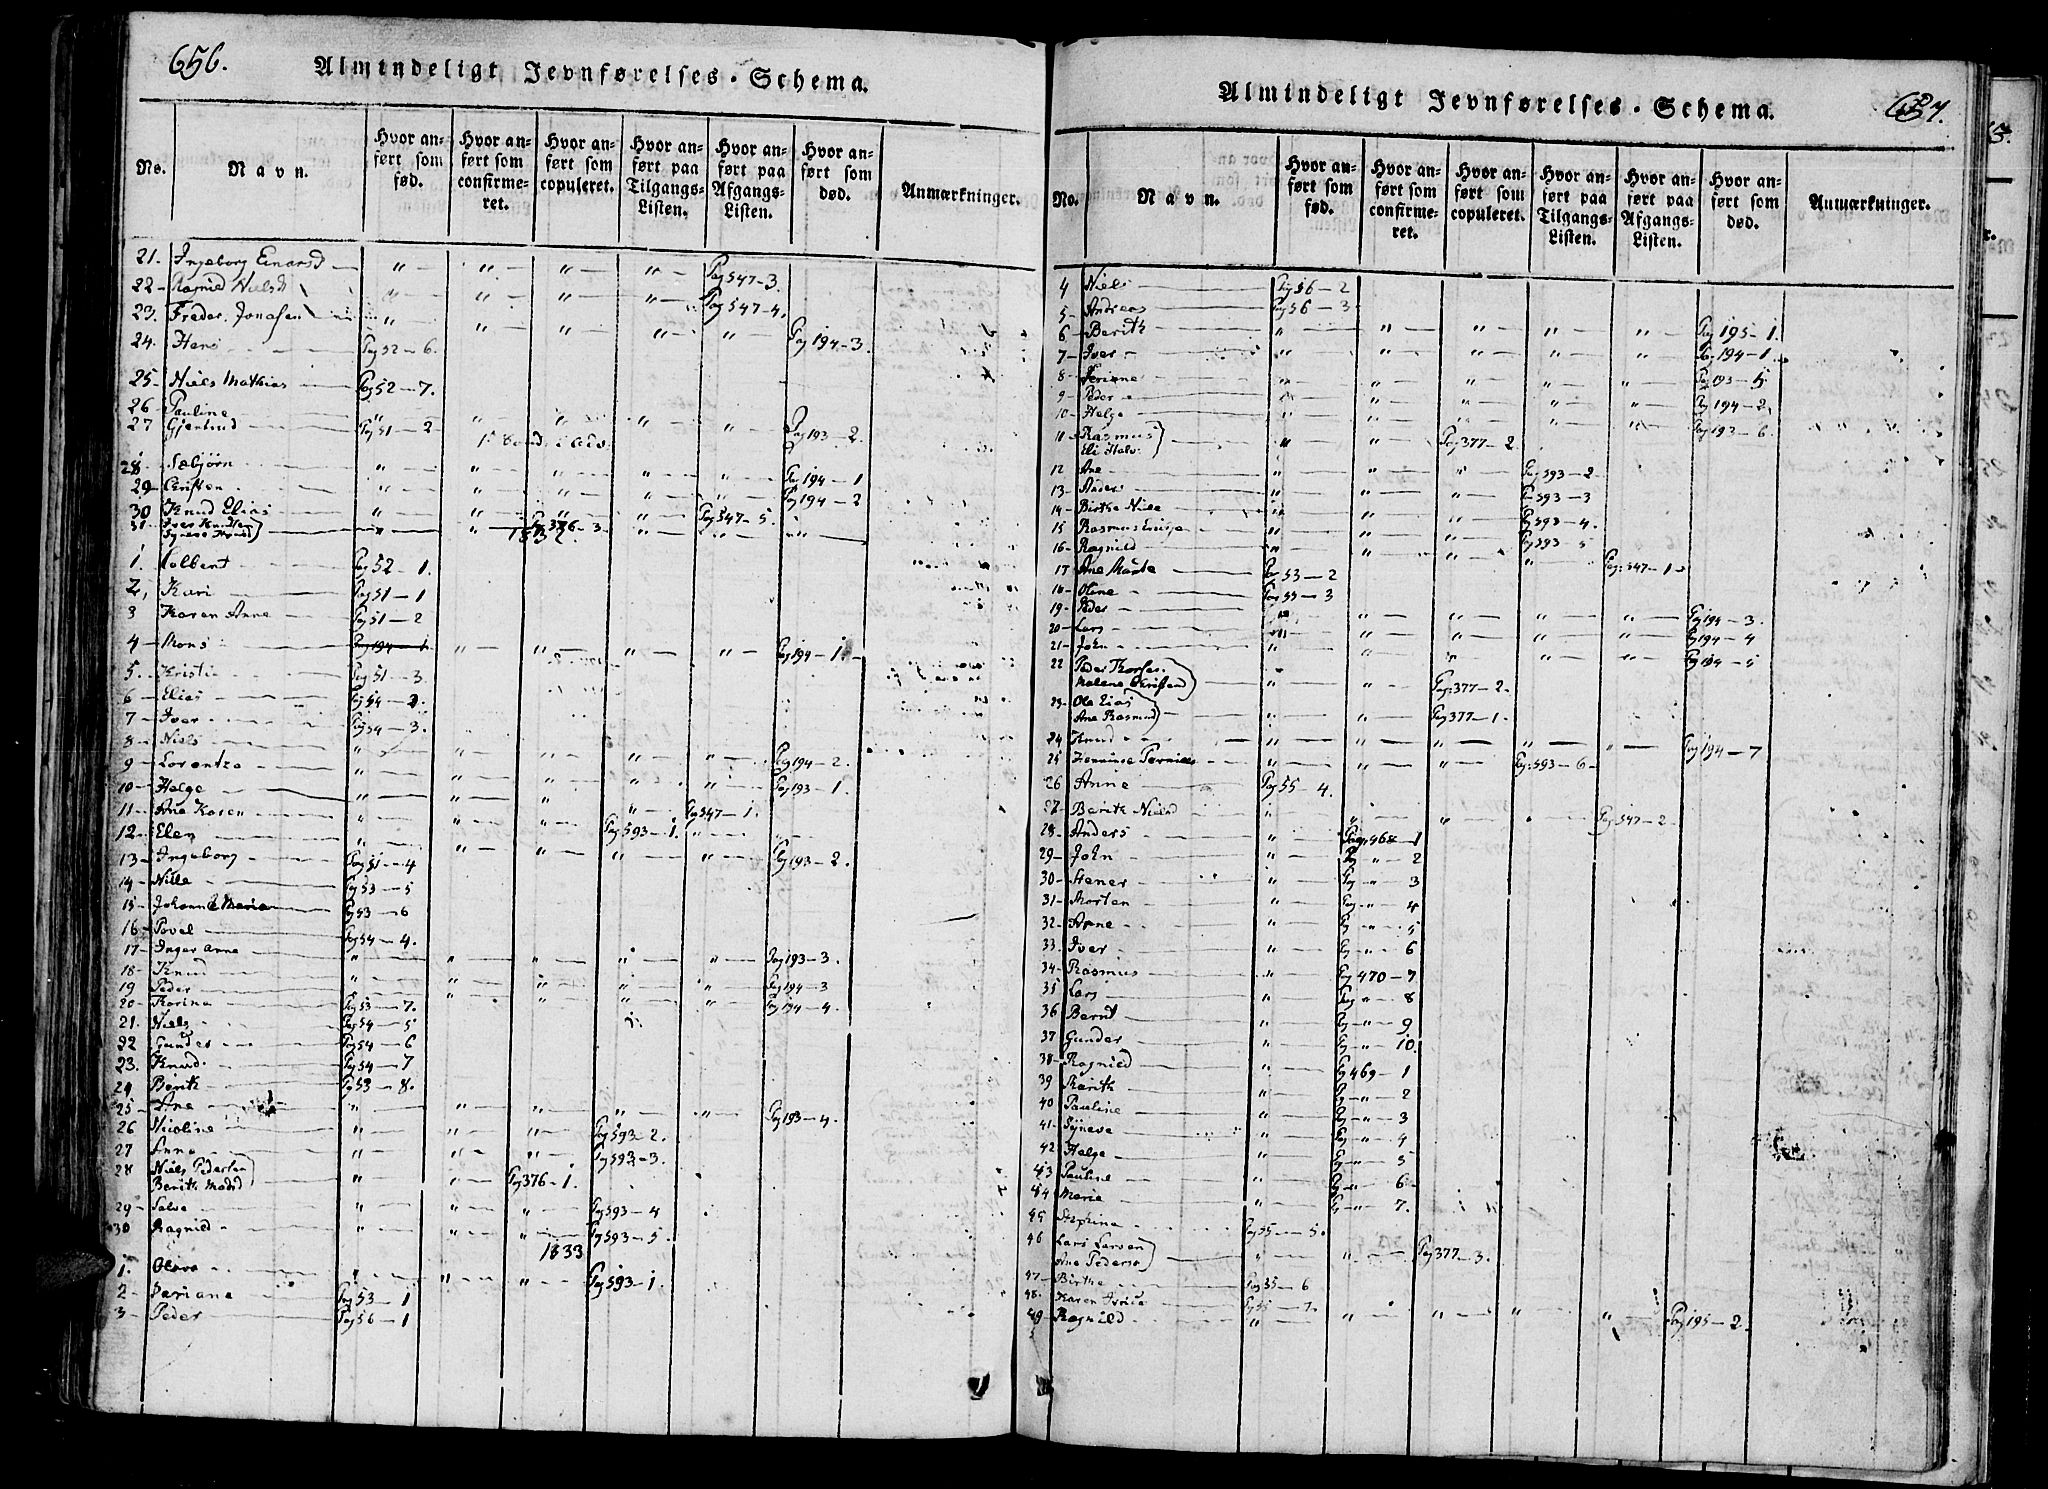 656.
Almindeligt Jevnførelses-Schema.
No.
Navn.
Hvor anført som fød.
Hvor anført som confirmeret.
Hvor anført som copuleret.
Hvor anført paa Tilgangs-Listen.
Hvor anført paa Afgangs-Listen.
Hvor anført som død.
Anmærkninger.
21. Ingeborg Einarsd " " " " Pag 547-3.
22 Ragnild Nielsd " " " " Pag 547-4.
23. Freder. Jonasen " " " " " Pag 194-3.
24. Hans Pag 52-6.
25 Niels Mathias Pag 52-7.
26 Pauline " " " " " Pag 193-2.
27 Gjertrud Pag 51-2
28 Sebjørn " " " " " Pag 194-1
29 Christen " " " " " Pag 194-2
30 Knud Elias " " " " Pag 547-5.
31 Iver Knudsen " " Pag 376-3. " " "
1832.
1. Colbent Pag 52-1.
2. Kari Pag 51-1
3 Karen Anne Pag 51-2
4 Mons Pag 194-1 " " " " Pag 194-1.
5. Kristi Pag 51-3
6 Elias Pag 54-2.
7 Iver Pag 54-3.
8 Niels " " " " " Pag 194-2.
9 Lorentza " " " " " Pag 193-1.
10 Helge " " " " Pag 547-1.
11 Ane Karen " " " Pag 593-1. " "
12 Elen " " " " " Pag 193-2.
13 Ingeborg Pag 51-4
14 Nille Pag 53-5
15 Johanne Marie Pag 53-6
16 Povel Pag 54-4.
17 Inger Anne " " " " " Pag 193-3.
18 Knud " " " " " Pag 194-3
19 Peder " " " " " Pag 194-4.
20 Karina Pag 53-7.
21. Niels Pag 54-5
22 Gunder Pag 54-6
23. Knud Pag 54-7
24 Berith Pag 53-8.
25 Ane " " " " " Pag 193-4.
26 Nicoline " " " Pag 593-2.
27 Anne " " " Pag 593-3.
28 Niels Pedersen Berith Madsd " " Pag 376-1.
29 Salve " " " Pag 593-4
30 Ragnild " " " Pag 593-5.
1833
1. Olava " " " Pag 593-1.
2 Jariane Pag 53-1
3 Peder Pag 56-1
657.
Almindeligt Jevnførelses-Schema.
No.
Navn.
Hvor anført som fød.
Hvor anført som confirmeret.
Hvor anført som copuleret.
Hvor anført paa Tilgangs-Listen.
Hvor anført paa Afgangs-Listen.
Hvor anført som død.
Anmærkninger.
4 Niels Pag 56-2
5 Andreas Pag 56-3
6 Berith " " " " " Pag 195-1.
7 Iver " " " " " Pag 194-1.
8 " " " " " Pag 193-5
9 Peder " " " " " Pag 194-2.
10 Helge " " " " " Pag 193-6.
11 Rasmus Eli Halv. " " Pag 377-2.
12 Ane " " " Pag 593-2.
13 Anders " " " Pag 593-3
14 Birthe Niels " " " Pag 593-4.
15 Rasmus " " " Pag 593-5
16 Ragnild " " " " Pag: 547-1
17 Ane Marte Pag 53-2
18 Oline Pag 55-3
19 Peder " " " " " Pag 194-3.
20 Lars " " " " " Pag 194-4
21 John " " " " " Pag 194-5
22 Peder Malene Christend " " Pag: 377-2.
23 Ole Elias Ane Rasmusd " " Pag 377-1.
24 Knud " " " " " Pag 194-7
25 " " " Pag: 593-6
26 Anne Pag 55-4.
27 Berith Nielsd " " " " Pag 547-2
28 Anders " Pag: 468-1
29 John " Pag " 2
30 Stener " Pag " 3
31 Morten " Pag " 4
32 Arne " Pag " 5
33 Iver " Pag " 6
34 Rasmus " Pag 470-7
35 Lars " Pag " 8
36 Bernt " Pag " 9
37 Gunder " Pag " 10.
38 Ragnild " Pag 469-1
39 Marith " Pag " 2
40 Pauline " Pag " 3
41 Syneve " Pag " 4
42 Helge " Pag " 5
43 Pauline " Pag " 6
44 Marie " Pag " 7.
45 Pag 55-5.
46 Lars Larsen Ane Pedersd " " Pag 377-3.
47 Birthe Pag 55-6
48. Karen Pag 55-7
49 Ragnild " " " " " Pag 195-2.